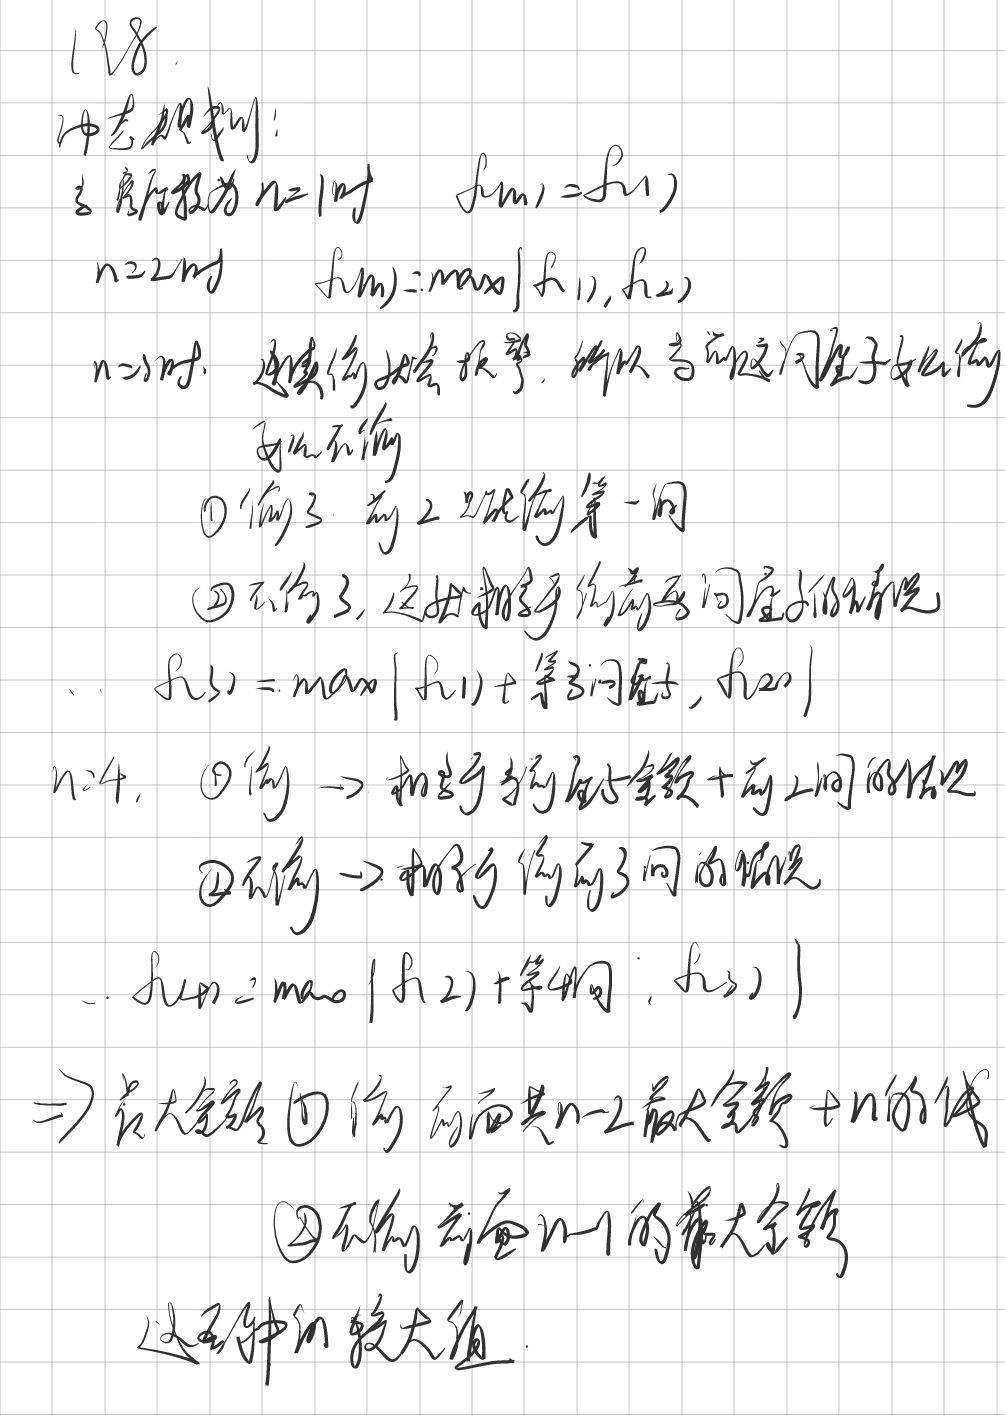 198.
动态规划:
当房屋数为n=1时 f(n)=f(1)
n=2时 f(n)=max|f(1),f(2)
n=3时. 连续偷就会报警. 所以当前这间屋子要么偷
要么不偷
①偷了 前2只能偷第一间
②不偷了,这就相当于偷前两间屋子的情况
∴ f(3)=max|f(1)+第3间屋子,f(2)|
n=4. ①偷→相当于当前屋子金额+前2间的情况
②不偷→相当于偷前3间的情况
∴ f(4)=max|f(2)+第4间,f(3)|
⇒最大金额①偷 前面共n-2最大金额+n的钱
②不偷前面n-1的最大金额
这两种的较大值.